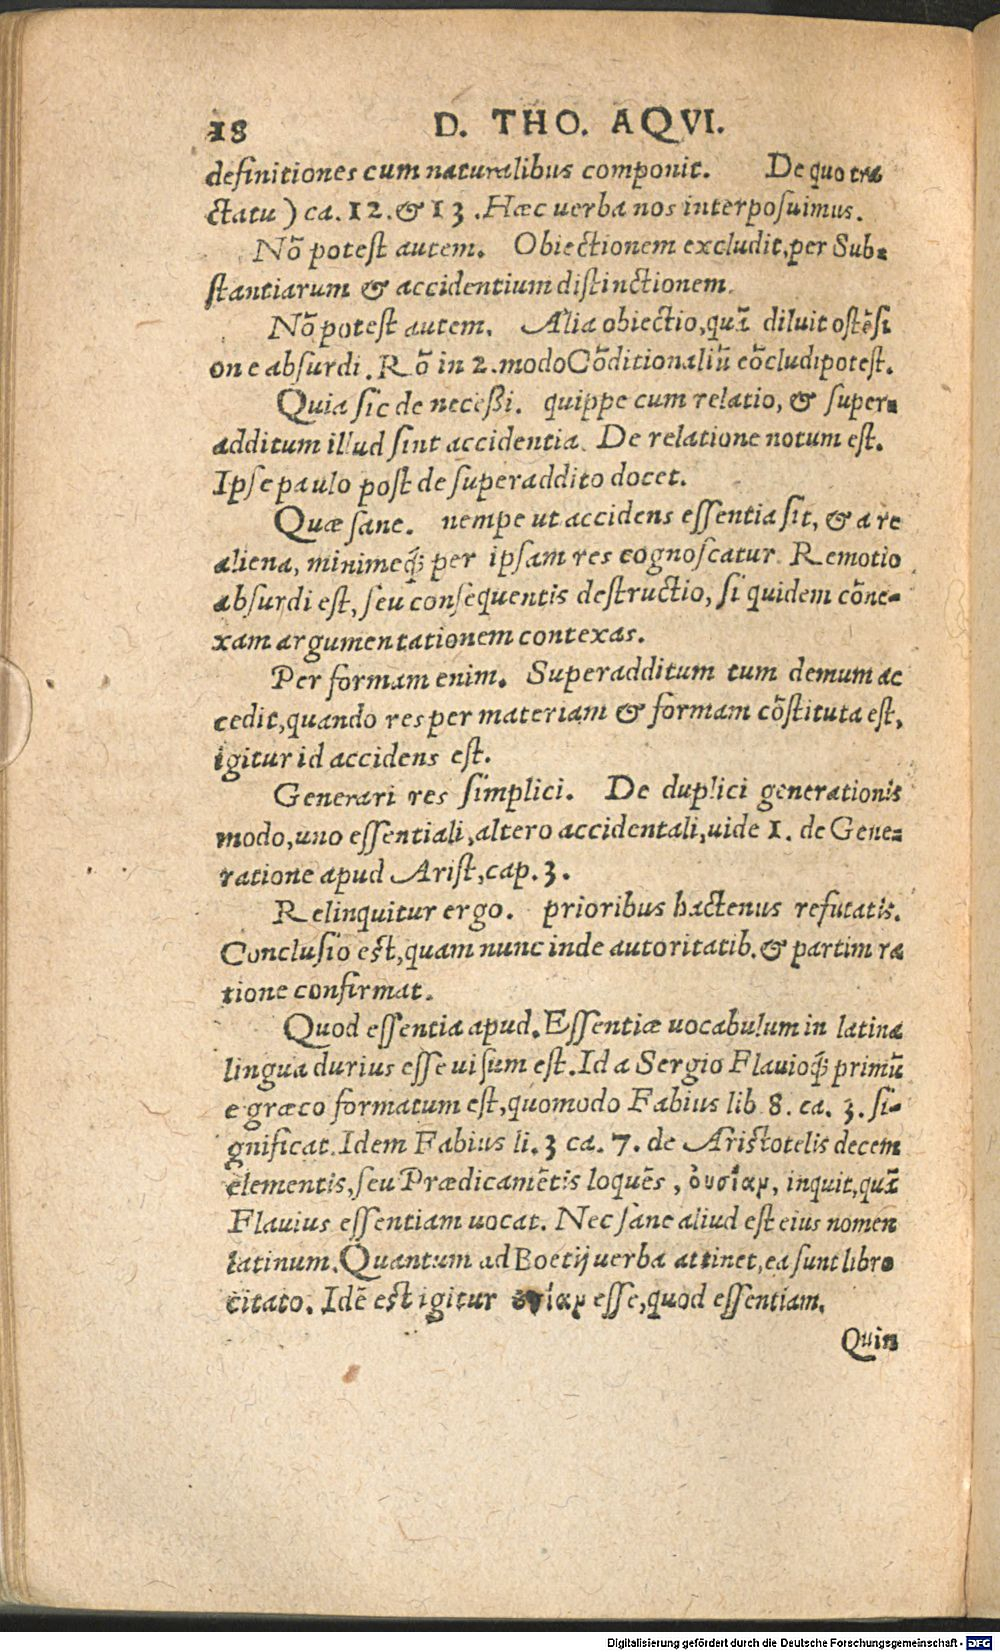 18 D. THO. AQVI.
definitiones cum naturalibus componit. De quo tra
ctatu) ca. 12. & 13. Hæc uerba nos interposuimus.
Nō potest autem. Obiectionem excludit, per Sub-
stantiarum & accidentium distinctionem.
Nō potest autem. Alia obiectio, quā diluit ostēsi
one absurdi. Rō in 2. modo Cōditionaliū cōcludi potest.
Quia sic de necessi. quippe cum relatio, & super-
additum illud sint accidentia. De relatione notum est.
Ipse paulo post de superaddito docet.
Quæ sane. nempe ut accidens essentia sit, & a re
aliena, minimeq́; per ipsam res cognoscatur. Remotio
absurdi est, seu consequentis destructio, si quidem cōne-
xam argumentationem contexas.
Per formam enim. Superadditum tum demum ac
cedit, quando res per materiam & formam cōstituta est,
igitur id accidens est.
Generari res simplici. De duplici generationis
modo, uno essentiali, altero accidentali, uide 1. de Gene-
ratione apud Arist, cap. 3.
Relinquitur ergo. prioribus hactenus refutatis.
Conclusio est, quam nunc inde autoritatib. & partim ra
tione confirmat.
Quod essentia apud. Essentiæ uocabulum in latina
lingua durius esse uisum est. Id a Sergio Flauioq́; primū
e græco formatum est, quomodo Fabius lib 8. ca. 3. si-
gnificat. Idem Fabius li. 3 ca. 7. de Aristotelis decem
elementis, seu Prædicamētis loquēs, ὀυσίαμ, inquit, quā
Flauius essentiam uocat. Nec sane aliud est eius nomen
latinum. Quantum ad Boetij uerba attinet, ea sunt libro
citato. Idē est igitur ουσίαμ esse, quod essentiam.
Quin
Digitalisierung gefördert durch die Deutsche Forschungsgemeinschaft - DFG